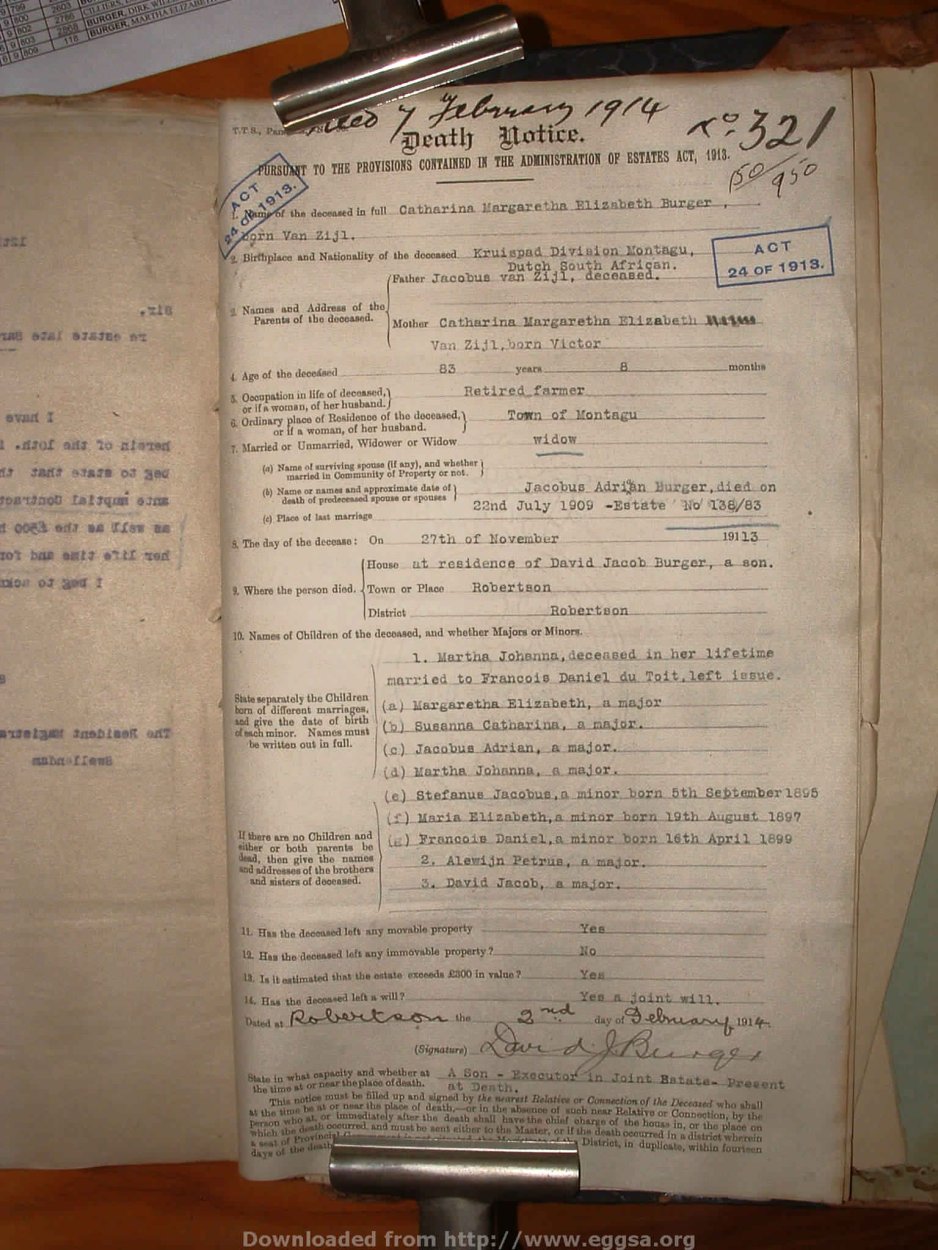 1799
9800 2603 CILLIERS,
9 802 2786 BURGER, DIRK
9 803 2803 BURGER, MARTHA ELIZABETH
9 809 118
7 February 1914
T.T.S.,
Death Notice.
No. 321
PURSUANT TO THE PROVISIONS CONTAINED IN THE ADMINISTRATION OF ESTATES ACT, 1913.
50/950
ACT
24 OF 1913.
1. Name of the deceased in full Catharina Margaretha Elizabeth Burger,
born Van Zijl.
2. Birthplace and Nationality of the deceased Kruispad Division Montagu,
Dutch South African.
ACT
24 OF 1913.
3. Names and Address of the Parents of the deceased.
Father Jacobus van Zijl, deceased.
Mother Catharina Margaretha Elizabeth
Van Zijl, born Victor
4. Age of the deceased 83 years 8 months
5. Occupation in life of deceased, or if a woman, of her husband. Retired farmer
6. Ordinary place of Residence of the deceased, or if a woman, of her husband. Town of Montagu
7. Married or Unmarried, Widower or Widow widow
(a) Name of surviving spouse (if any), and whether married in Community of Property or not.
(b) Name or names and approximate date of death of predeceased spouse or spouses Jacobus Adrian Burger, died on
22nd July 1909 -Estate No 138/83
(c) Place of last marriage
8. The day of the decease: On 27th of November 19113
9. Where the person died.
House at residence of David Jacob Burger, a son.
Town or Place Robertson
District Robertson
10. Names of Children of the deceased, and whether Majors or Minors.
State separately the Children
born of different marriages,
and give the date of birth
of each minor. Names must
be written out in full.
1. Martha Johanna, deceased in her lifetime
married to Francois Daniel du Toit, left issue.
(a) Margaretha Elizabeth, a major
(b) Susanna Catharina, a major.
(c) Jacobus Adrian, a major.
(d) Martha Johanna, a major.
(e) Stefanus Jacobus, a minor born 5th September 1895
(f) Maria Elizabeth, a minor born 19th August 1897
(g) Francois Daniel, a minor born 16th April 1899
2. Alewijn Petrus, a major.
3. David Jacob, a major.
If there are no Children and
either or both parents be
dead, then give the names
and addresses of the brothers
and sisters of deceased.
11. Has the deceased left any movable property Yes
12. Has the deceased left any immovable property? No
13. Is it estimated that the estate exceeds £300 in value? Yes
14. Has the deceased left a will? Yes a joint will.
Dated at Robertson the 2nd day of February 1914.
(Signature) David J Burger
State in what capacity and whether at the time at or near the place of death. A Son - Executor in Joint Estate- Present
at Death.
This notice must be filled up and signed by the nearest Relative or Connection of the Deceased who shall
at the time be at or near the place of death,—or in the absence of such near Relative or Connection, by the
person who at, or immediately after the death shall have the chief charge of the house in, or the place on
which the death occurred, and must be sent either to the Master, or if the death occurred in a district wherein
a seat of Provincial District, in duplicate, within fourteen
days of the death
Sir,
re estate late
I have
herein of the 10th.
beg to state that
ante nuptial Contract
as well as the £500
her life time and for
I beg to
The Resident Magistrate
Swellendam
Downloaded from http://www.eggsa.org